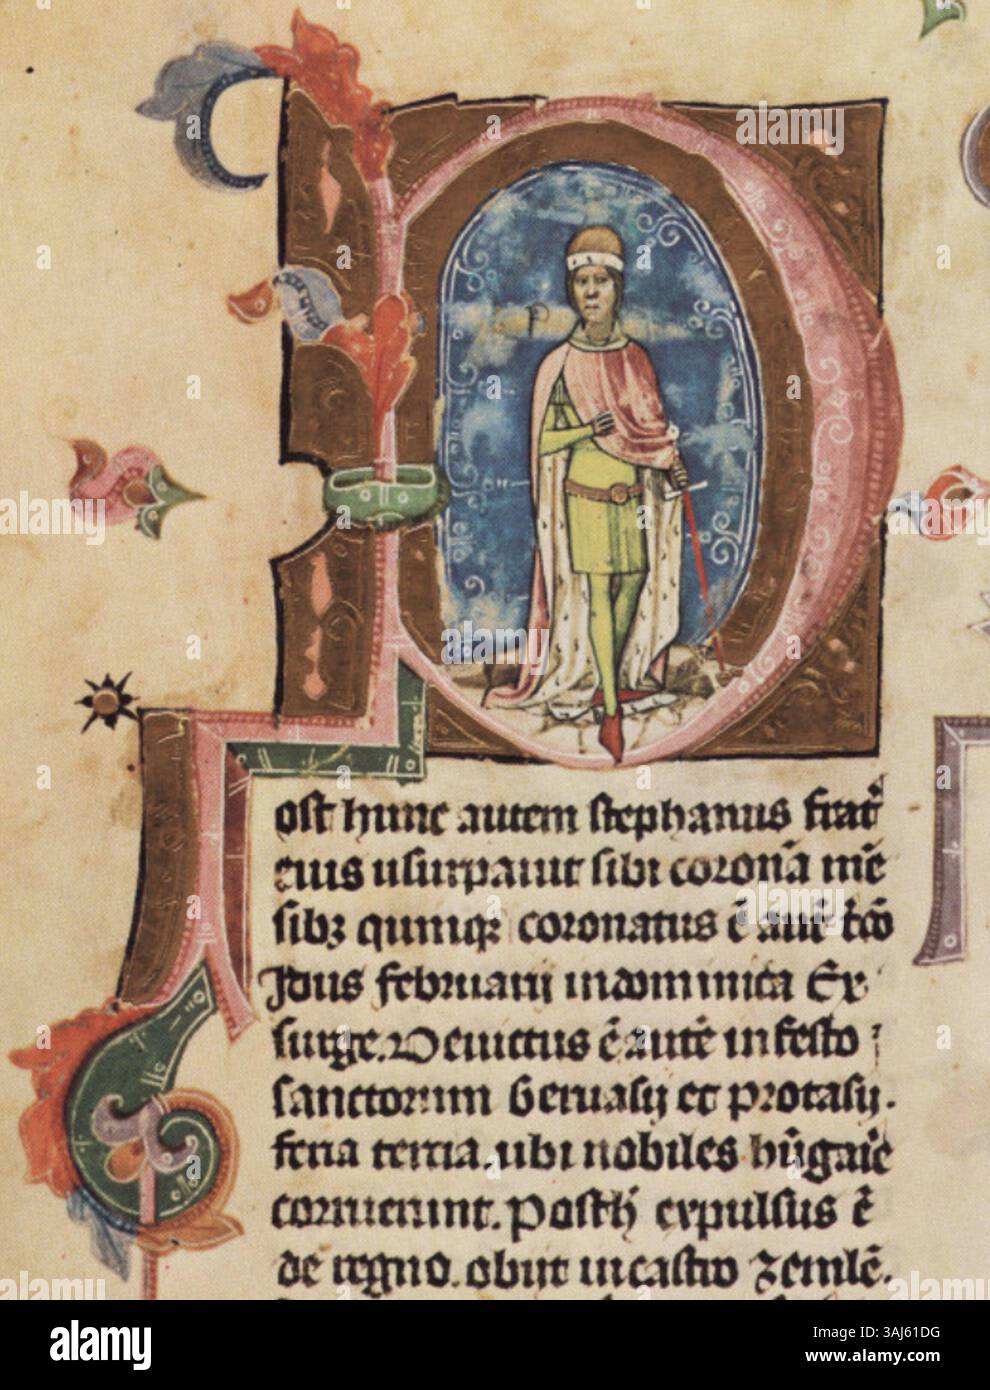 P
ost hunc autem stephanus frat̄
eius usurpauit sibi coronā mē
sibꝫ quinqꝫ coronatus ē aūt
Idus februarij in dominica Ex
surge. Deuictus ē aūtē in festo
sanctorum Geruasij et protasij.
feria tertia. ubi nobiles hūgarie
corruerunt. Posth expulsus ē
de regno. obijt in castro zemlē.
alamy
Image ID: 3AJ61DG
www.alamy.com